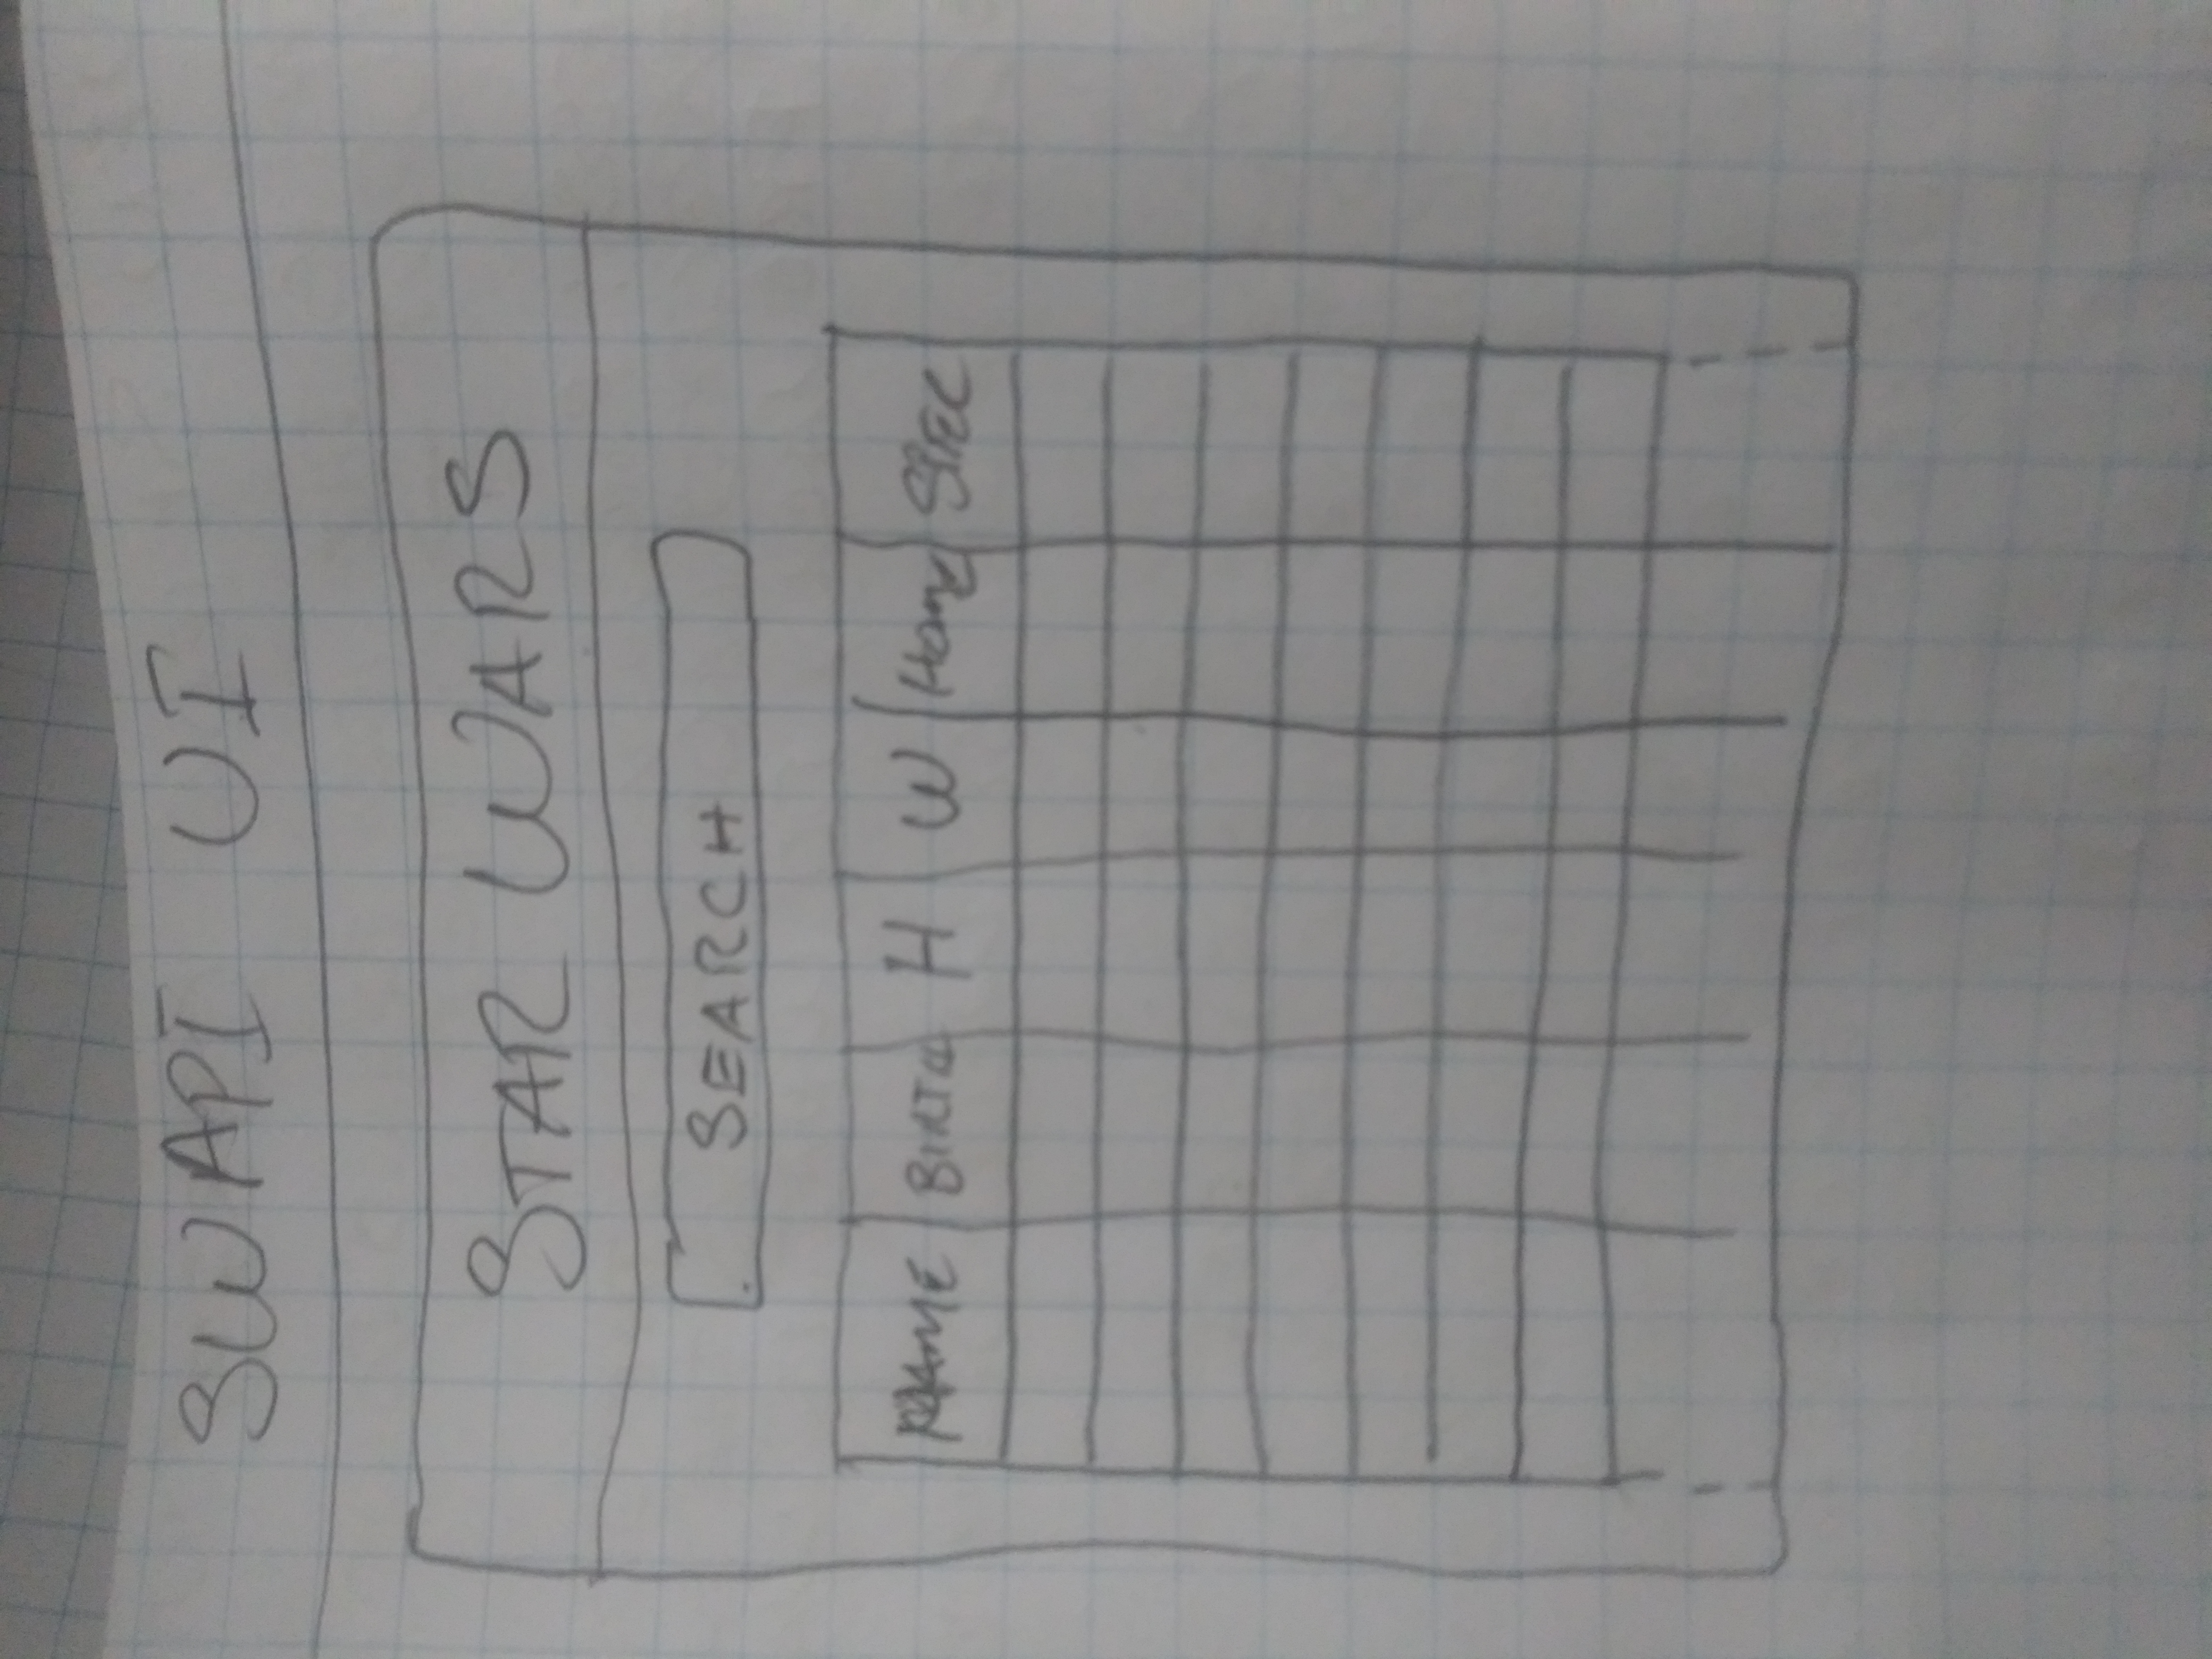 SWAPI UI
STAR WARS
SEARCH
NAME BIRTH H W HOME SPEC